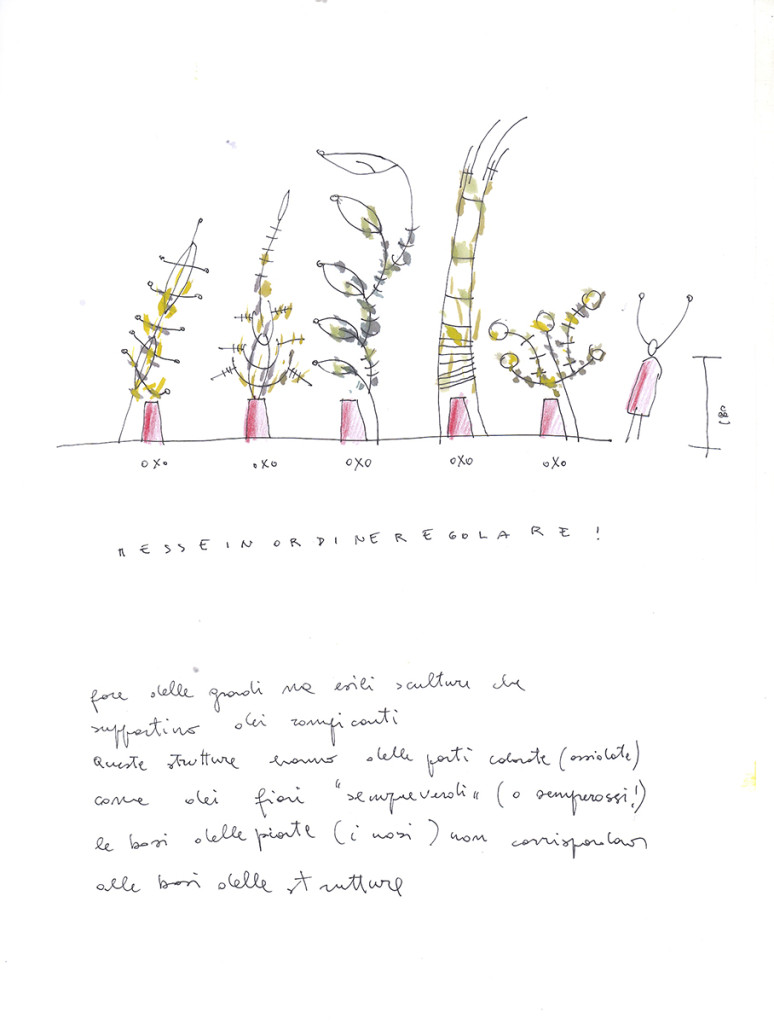 oxo oxo oxo oxo oxo
180
MESSE IN ORDINE REGOLARE !
fare delle grandi ma esili sculture che
supportino dei rampicanti
Queste strutture hanno delle parti colorate (ossidate)
come dei fiori "sempreverdi" (o semperossi!)
le basi delle piante (i vasi) non corrispondono
alle basi delle strutture